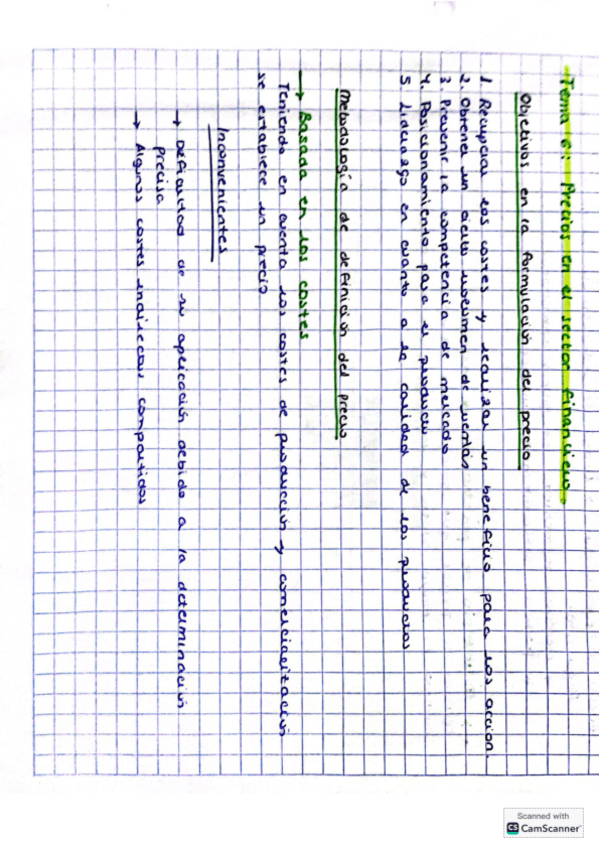 Tema 6: Precios en el sector financiero.
Objetivos en la formulación del precio
1. Recuperar los costes y realizar un beneficio para los accion.
2. Obtener un cierto volumen de ventas
3. Prevenir la competencia de mercado
4. Posicionamiento para el producto
5. Liderazgo en cuanto a la calidad de los productos
Metodología de definición del precio
→ Basada en los costes
Teniendo en cuenta los costes de producción y comercialización
se establece un precio
Inconvenientes
→ Dificultad de su aplicación debido a la determinación
precisa
→ Algunos costes indirectos compartidos
Scanned with
CS CamScanner